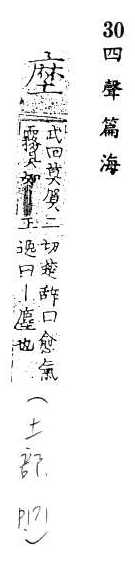 30 四聲篇海
塺
武回莫賀二切楚辭曰愈氣
霧其如王逸曰丨塵也
（土部 P171）